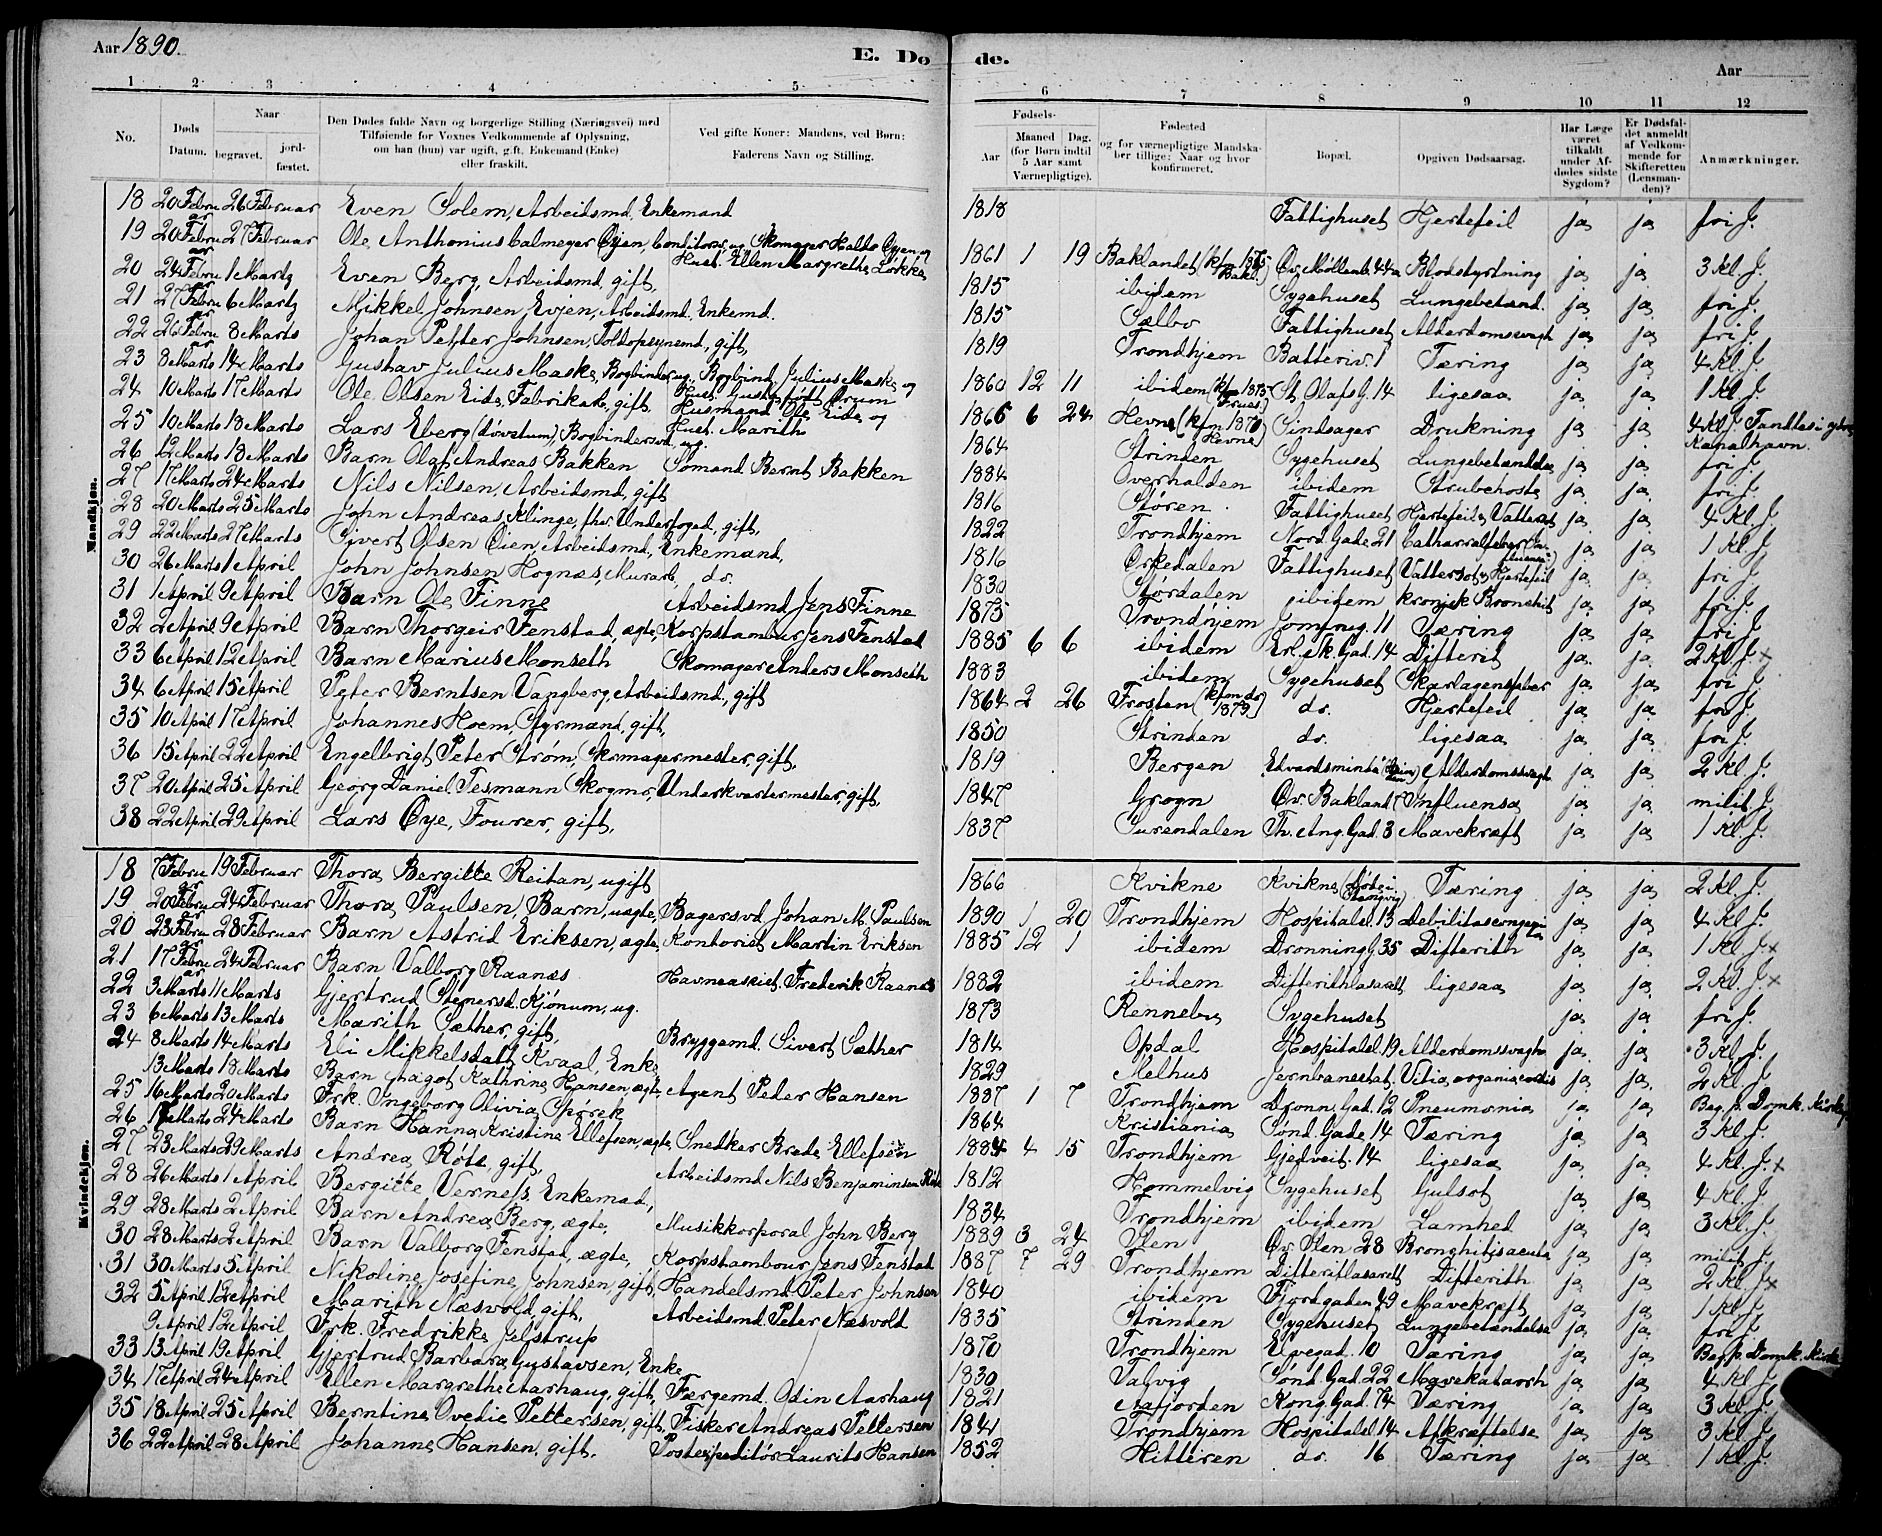 Aar 1890.
E. Dø
1 2 3 4 5
No. Døds Datum. Naar begravet. jord-fæstet. Den Dødes fulde Navn og borgerlige Stilling (Næringsvei) med Tilføiende for Voxnes Vedkommende af Oplysning, om han (hun) var ugift, g.ft. Enkemand (Enke) eller fraskilt. Ved gifte Koner: Mandens, ved Børn: Faderens Navn og Stilling.
Mandkjøn.
18 20 Februar 26 Februar Even Solem, Arbeidsmd, Enkemand
19 20 Februar 27 Februar Ole Anthonius Calmeyer Øyen, Conditorsv, ug. Skomager Øyen og Hust. Ellen Margrethe Løkke
20 24 Februar 1 Marts Even Berg, Arbeidsmd, gift,
21 27 Februar 6 Marts Mikkel Johnsen Evjen, Arbeidsmd. Enkemd.
22 26 Februar 8 Marts Johan Petter Johnsen, Toldopsynsmd, gift,
23 8 Marts 14 Marts Gustav Julius Maske, Bogbinder, ug. Bogbind. Julius Maske og Hust. født Krum
24 10 Marts 17 Marts Ole Olsen Eide, Fabrikarb, gift, Husmand Ole Eide og Hust. Marith
25 10 Marts 18 Marts Lars Eberg (døvstum), Bogbindersv, ug.
26 12 Marts 18 Marts Barn Olaf Andreas Bakken Sømand Bernt Bakken
27 17 Marts 24 Marts Nils Nilsen, Arbeidsmd, gift
28 20 Marts 25 Marts John Andreas Klinge, fhv. Underfoged, gift,
29 22 Marts 27 Marts Sivert Olsen Øien, Arbeidsmd, Enkemand,
30 26 Marts 1 April John Johnsen Hognæs, Murarb. do.
31 1 April 9 April Barn Ole Finne Arbeidsmd Jens Finne
32 2 April 9 April Barn Thorgeir Fenstad, ægte, Korpstambur Jens Fenstad
33 6 April 12 April Barn Marius Monseth Skomager Anders Monseth
34 6 April 15 April Peter Berntsen Vangberg, Arbeidsmd, gift
35 10 April 17 April Johannes Hoem, Styrmand, gift,
36 15 April 22 April Engelbrigt Peter Strøm, Skomagermester, gift,
37 20 April 25 April Georg Daniel Tesmann Skogmo, Underkvartermester, gift,
38 22 April 29 April Lars Øye, Fourer, gift,
Kvindekjøn.
18 7 Februar 19 Februar Thora Bergitte Reitan, ugift
19 20 Februar 24 Februar Thora Paulsen, Barn, uægte, Bagersvd Johan M. Paulsen
20 23 Februar 28 Februar Barn Astrid Eriksen, ægte, Kontorist Martin Eriksen
21 17 Februar 24 Februar Barn Valborg Raanæs Havneassist. Frederik Raanæs
22 3 Marts 11 Marts Gjertrud Stenersd. Kjønum, ug.
23 6 Marts 13 Marts Marith Sæther, gift, Bryggemd. Sivert Sæther
24 8 Marts 14 Marts Eli Mikkelsdatt Kvaal, Enke
13 Marts 18 Marts Barn Aagot Kathrine Hansen, ægte, Agent Peter Hansen
25 16 Marts 20 Marts Frk. Ingeborg Olivia Spørck
26 17 Marts 24 Marts Barn Hanna Kristine Ellefsen, ægte, Snedker Brede Ellefsen
27 23 Marts 29 Marts Andrea Röte, gift, Arbeidsmd Nils Benjaminsen Röte
28 26 Marts 1 April Bergitte Verness, Enkemad,
29 28 Marts 2 April Barn Andrea Berg, ægte, Musikkorporal John Berg
30 28 Marts 2 April Barn Valborg Fenstad, ægte, Korpstambour Jens Fenstad
31 30 Marts 5 April Nikoline Josefine Johnsen, gift, Handelsmd Peter Johnsen
32 5 April 12 April Marith Næsvold, gift, Arbeidsmd. Peter Næsvold
9 April 12 April Frk. Fredrikke Jelstrup
33 13 April 19 April Gjertrud Barbara Gustavsen, Enke
34 17 April 24 April Ellen Margrethe Aarhaug, gift, Færgemd. Odin Aarhaug
35 18 April 25 April Berntine Ovedie Pettersen, gift, Fisker Andreas Pettersen
36 22 April 28 April Johanne Hansen, gift, Postexpeditør Laurits Hansen
de. Aar
6 7 8 9 10 11 12
Fødsels- Aar Maaned Dag. (for Børn indtil 5 Aar samt Værnepligtige). Fødested og for værnepligtige Mandskaber tillige: Naar og hvor konfirmeret. Bopæl. Opgiven Dødsaarsag. Har Læge været tilkaldt under Afdødes sidste Sygdom? Er Dødsfaldet anmeldt af Vedkommende for Skifteretten (Lensmanden)? Anmærkninger.
1818 Fattighuset Hjertefeil ja ja fri J.
1861 1 19 Baklandet (kfm 1875 Bakl.) Øv. Møllenb. 44a Blodstyrtning ja ja 3 Kl. J.
1815 ibidem Sygehuset Lungebetænd. ja ja fri J.
1815 Sælbo Fattighuset Alderdomssvagh ja ja fri J.
1819 Trondhjem Batteriv. 1 Tæring ja ja 4 Kl. J.
1860 12 11 ibidem (kfm 1875 Frues.) St. Olafs G. 14 ligesaa ja ja 1 Kl. J.
1865 6 24 Hevne (kfm 1870 Hevne) Sindsager Drukning ja ja 4 Kl. J. Fandtes i ydre Kanalhavn.
1864 Strinden Sygehuset Lungebetændelse ja ja fri J.
1884 Overhalden ibidem Strubehoste ja ja fri J.
1816 Støren Fattighuset Hjertefeil, Vattersot ja ja 4 Kl. J.
1822 Trondhjem Nord. Gade 21 Catharralfeber ja ja 1 Kl. J.
1816 Orkedalen Fattighuset Vattersot, Hjertefeil ja ja fri J.
1830 Størdalen ibidem kronisk Bronchit ja ja fri J.
1875 Trondhjem Jomfrug. 11 Tæring ja ja fri J.
1885 6 6 ibidem Erl. Sk. Gad. 14 Difterit ja ja 2 Kl. J. ×
1883 ibidem Sygehuset Skarlagensfeber ja ja fri J.
1864 2 26 Frosten (kfm do 1879) do. Hjertefeil ja ja fri J.
1850 Strinden do. ligesaa ja ja fri J.
1819 Bergen Edvardsminde Alderdomssvagh ja ja 2 Kl. J.
1847 Grogn Øv. Bakland 7 Influensa ja ja milit. J.
1837 Surendalen Th. Ang. Gad. 3 Mavekræft ja ja 1 Kl. J.
1866 Kvikne Kvikne Tæring ja ja 2 Kl. J.
1890 1 20 Trondhjem Hospitalsl. 13 Debilitas congenita ja ja 4 Kl. J.
1885 12 1 ibidem Dronning G. 35 Difterith ja ja 1 Kl. J. ×
1882 ibidem Difterithlasarett ligesaa ja ja 2 Kl. J. ×
1873 Rennebu Sygehuset ja ja fri J.
1814 Opdal Hospitalsl. 19 Alderdomssvagh ja ja 3 Kl. J.
1829 Melhus Jernbanestat. Vitia organica cordis ja ja 2 Kl. J.
1887 1 7 Trondhjem Dronn. Gad. 12 Pneumonia ja ja Beg. p. Domk. Kirkeg
1864 Kristiania Sønd. Gade 14 Tæring ja ja 3 Kl. J.
1884 4 15 Trondhjem Gjedveit. 14 ligesaa ja ja 4 Kl. J. ×
1812 Hommelvig Sygehuset Gulsot ja ja 4 Kl. J.
1834 Trondhjem ibidem Lamhed ja ja 3 Kl. J.
1889 3 24 Ilen Øv. Ilen 28 Bronchitis acuta ja ja milit J.
1887 7 29 Trondhjem Difteritlasarett Difterith ja ja 2 Kl. J. ×
1840 ibidem Fjordgaden 49 Mavekræft ja ja 1 Kl. J.
1835 Strinden Sygehuset Lungebetændelse ja ja fri J.
1870 Trondhjem Elvegad. 10 Tæring ja ja Beg. p. Domk. Kirke
1830 Talvig Sønd. Gad. 22 Mavekatarrh ja ja 4 Kl. J.
1821 Aafjorden Kong. Gad. 74 Tæring ja ja 3 Kl. J.
1841 Trondhjem Hospitalsl. 14 Afkræftelse ja ja 3 Kl. J.
1852 Hitteren do. 16 Tæring ja ja 1 Kl. J.